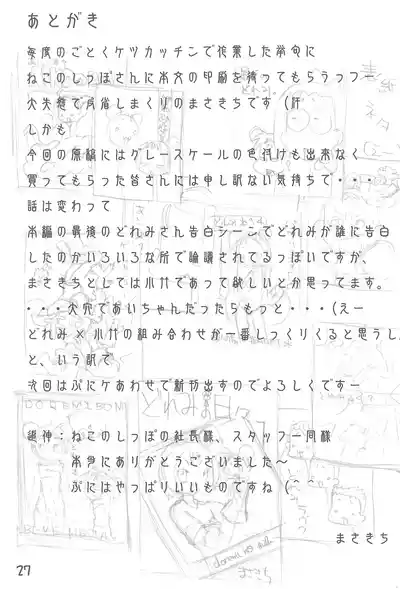 あとがき
毎度のごとくケツカッチンで作業した挙句に
ねこのしっぽさんに本文の印刷を待ってもらうっフー
大失態で反省しまくりのまさきちです (肝
しかも
今回の原稿にはグレースケールの色付けも出来なく
買ってもらった皆さんには申し訳ない気持ちで・・・
話は変わって
本編の最後のどれみさん告白シーンでどれみが誰に告白
したのかいろいろな所で論議されてるっぽいですが、
まさきちとしては小竹であって欲しいとか思ってます。
・・・大穴であいちゃんだったらもっと・・・(えー
どれみ×小竹の組み合わせが一番しっくりくると思うし
と、いう訳で
次回はぷにケあわせで新刊出すのでよろしくですー
謝神:ねこのしっぽの社長様、スタッフ一同様
本当にありがとうございました～
ぷにはやっぱりいいものですね (^^
まさきち
27
表紙
ネタ
(えー
どれみの日々
BLUE METAL
doremi no hibi
まさきち